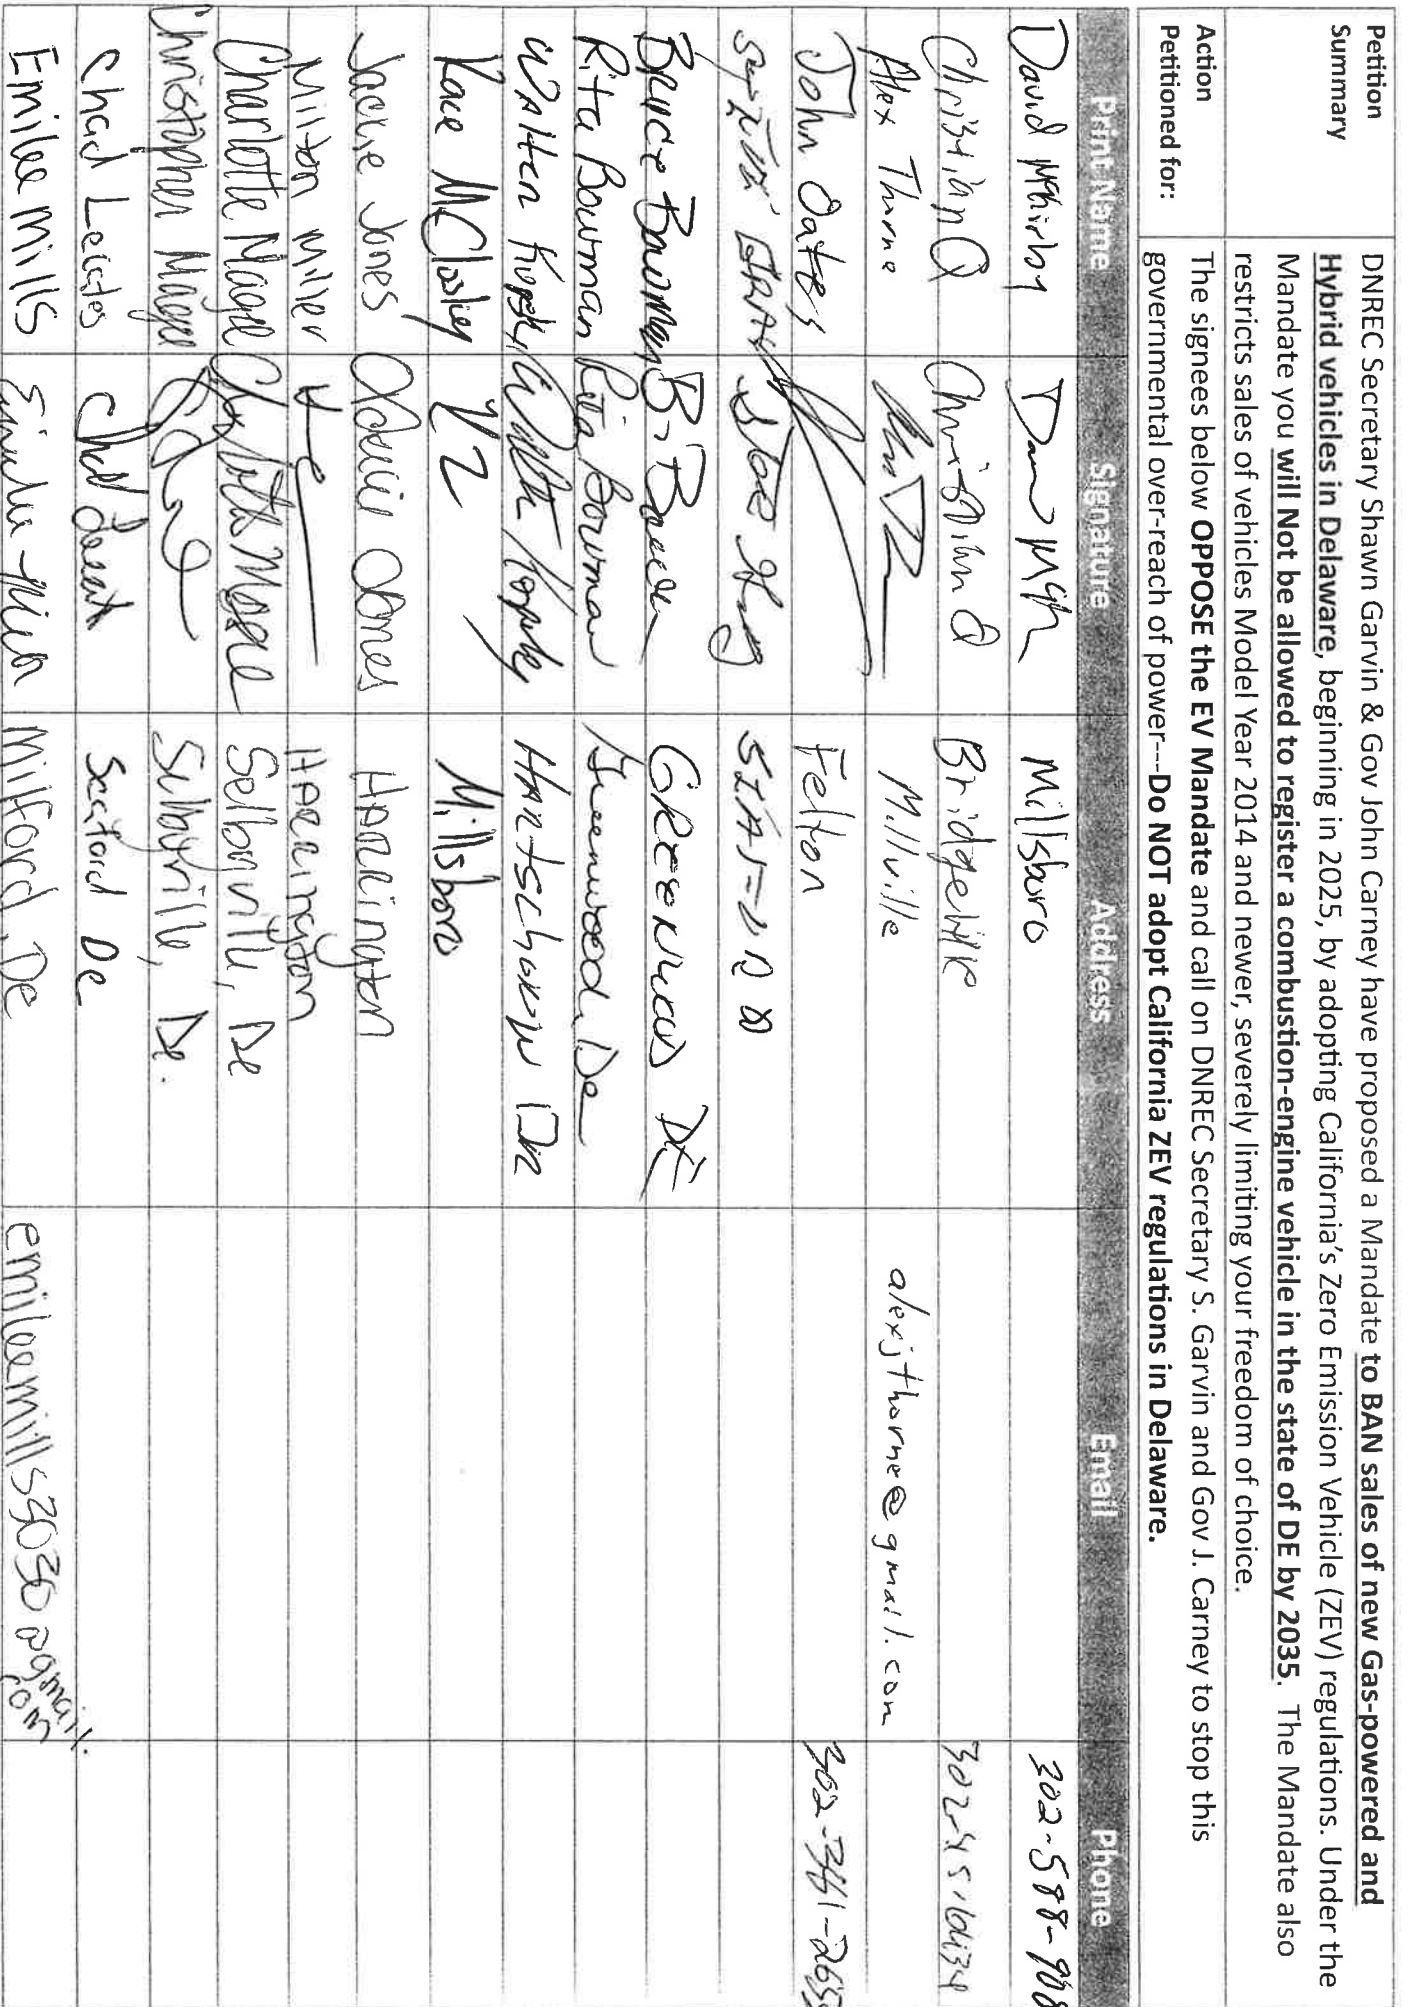 Petition Summary
DNREC Secretary Shawn Garvin & Gov John Carney have proposed a Mandate to BAN sales of new Gas-powered and
Hybrid vehicles in Delaware, beginning in 2025, by adopting California's Zero Emission Vehicle (ZEV) regulations. Under the
Mandate you will Not be allowed to register a combustion-engine vehicle in the state of DE by 2035. The Mandate also
restricts sales of vehicles Model Year 2014 and newer, severely limiting your freedom of choice.
Action Petitioned for:
The signees below OPPOSE the EV Mandate and call on DNREC Secretary S. Garvin and Gov J. Carney to stop this
governmental over-reach of power---Do NOT adopt California ZEV regulations in Delaware.
Print Name Signature Address Email Phone
David Millsboro
Christian Q Bridgeville
Alex Thorne Millville alexjthorne@gmail.com
John Oates Felton
Bruce Bowman Greenwood DE
Rita Bowman Rita Bowman Greenwood, De
Walter
Kace McCloskey Millsboro
Jackie Jones Harrington
Milton Miller Harrington
Charlotte Magee Selbyville, De
Christopher Magee Selbyville, De.
Chad Seaford De
Emilee Mills Milford, De emileemills3030@gmail.com